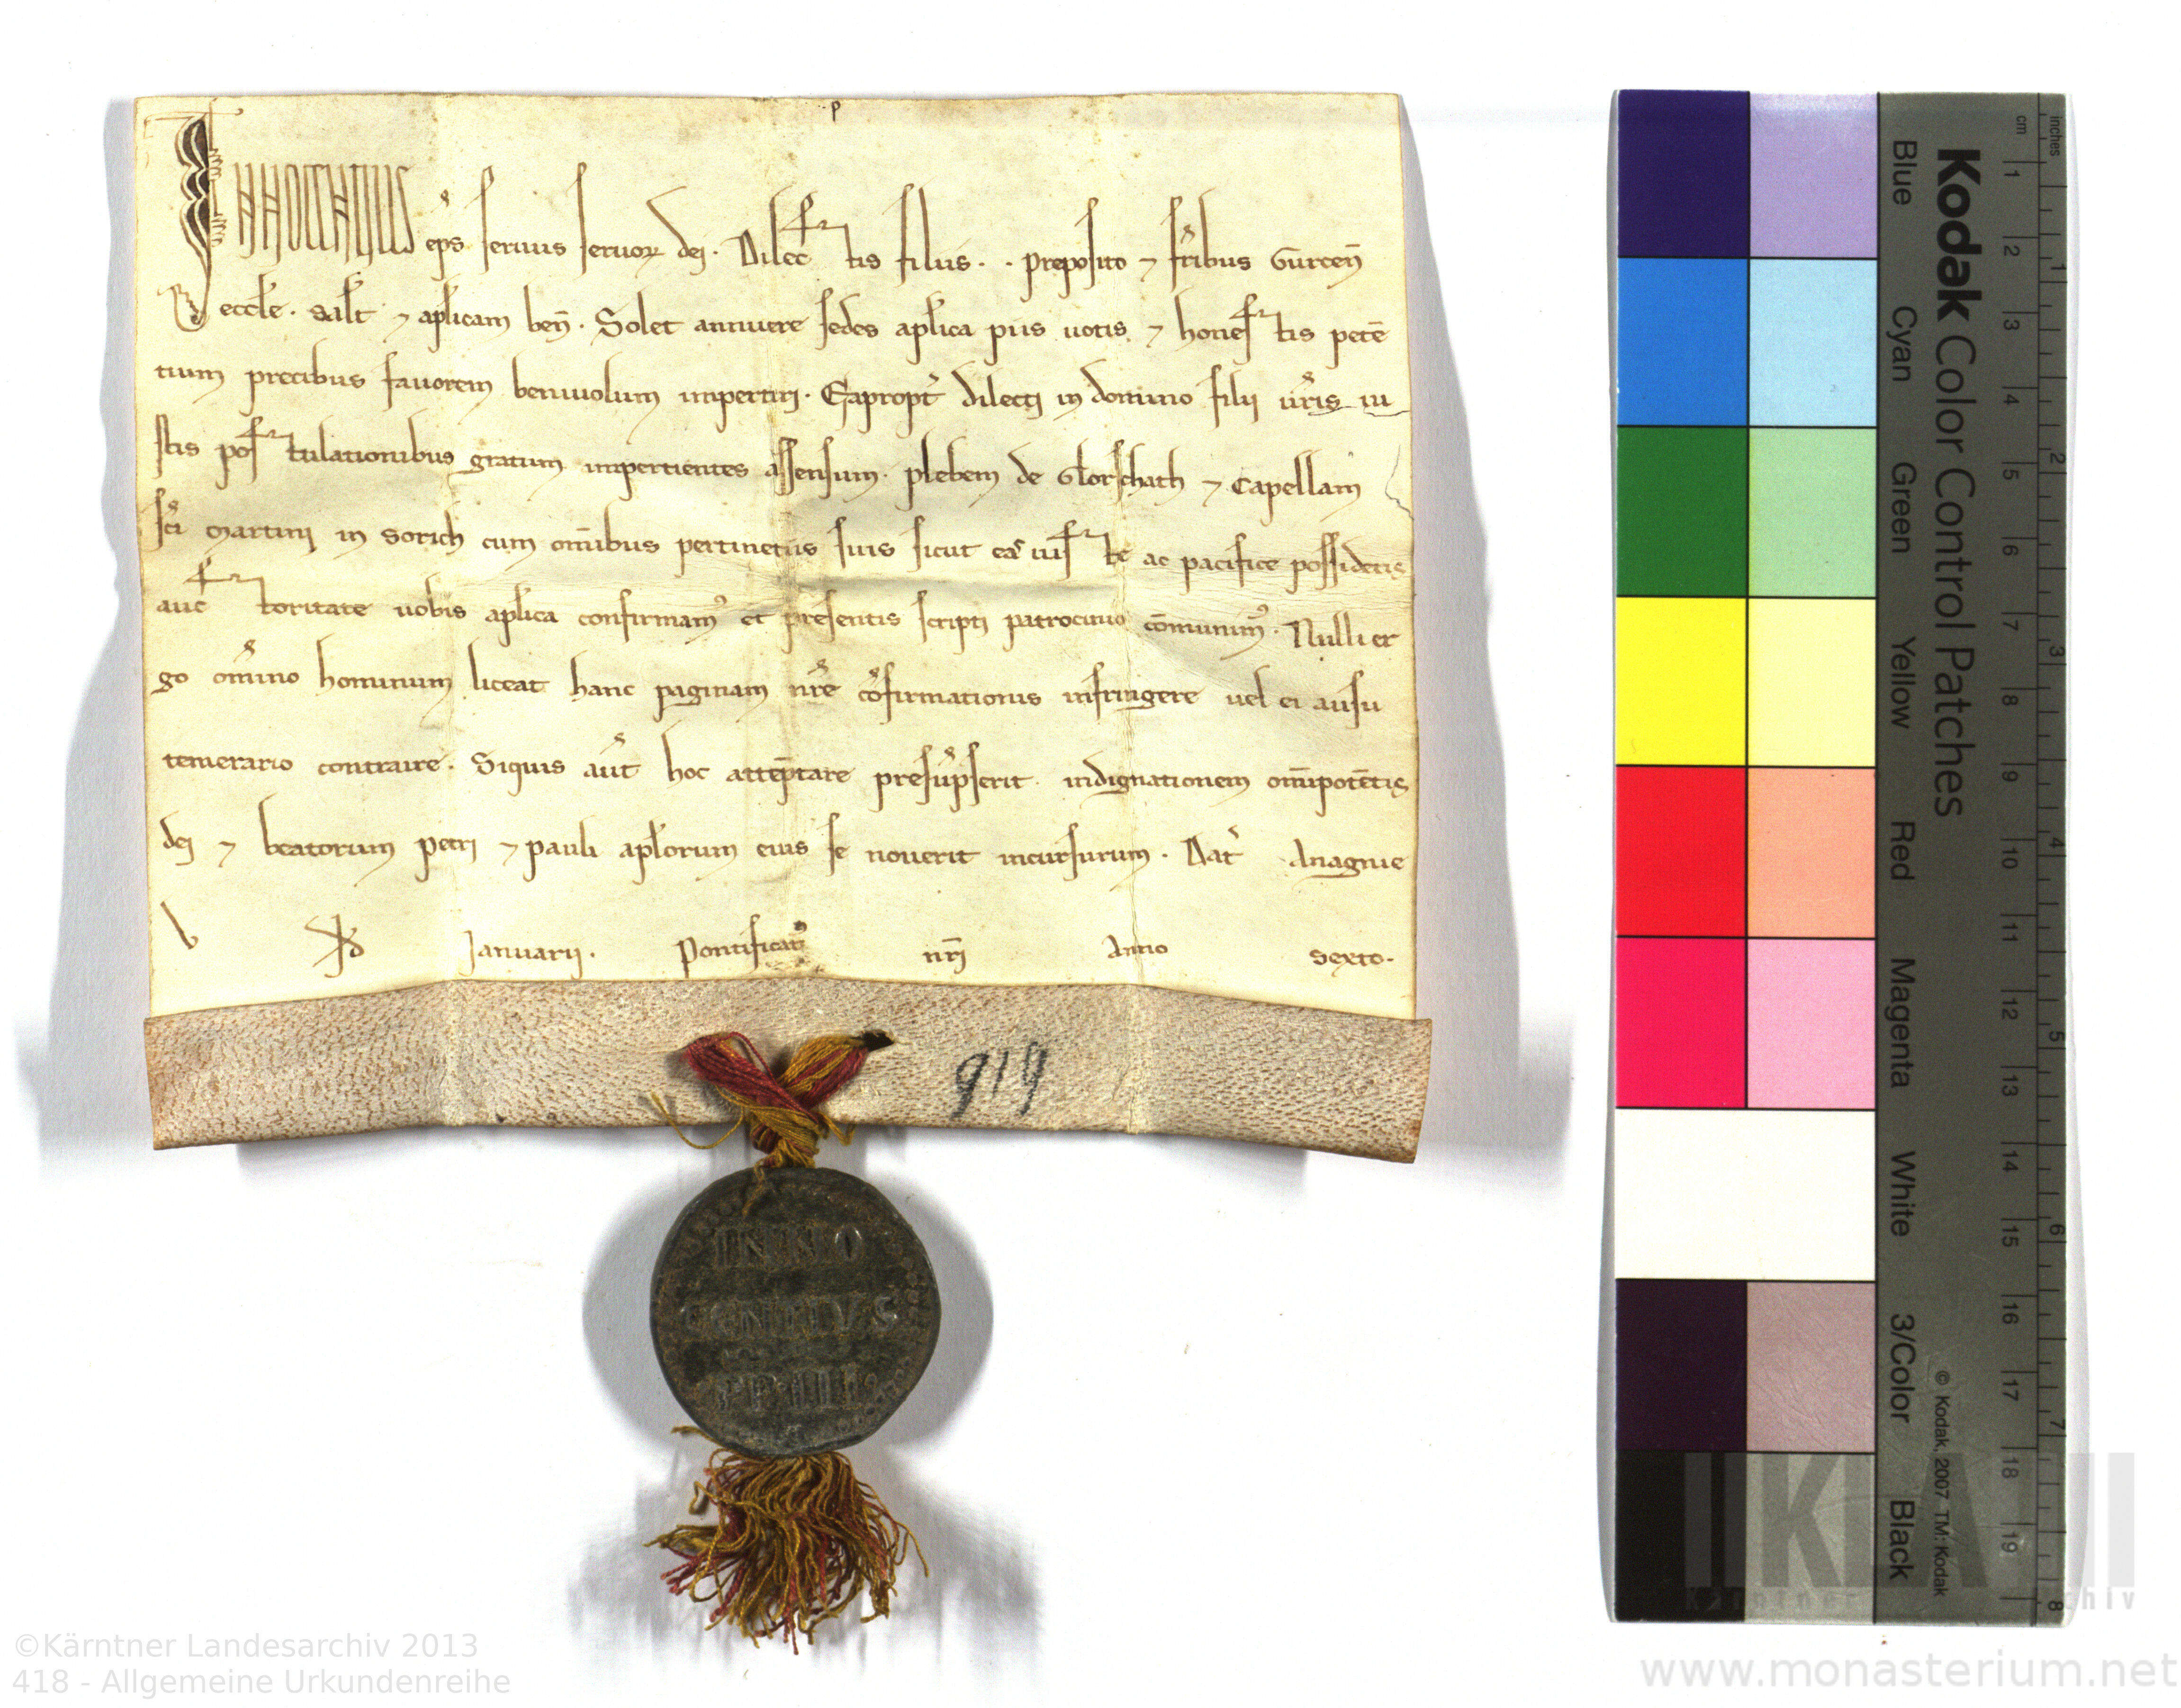 p
INNOCENTIUS ep̄s seruus seruoꝝ dei. Dilectis filiis . . preposito ⁊ fr̄ibus Gurceñ
eccl̄e. Salt̄ ⁊ apl̄icam beñ. Solet annuere sedes apl̄ica piis uotis ⁊ honestis petē
tium precibus fauorem beniuolum impertiri. Eapropt̄ dilecti in domino filii ur̄is iu
stis postulationibus gratum impertientes assensum. plebem de Glorschath ⁊ Capellam
sc̄i Martini in Sorich cum om̄ibus pertinētiis suis sicut eas iuste ac pacifice possidetis
auctoritate uobis apl̄ica confirmamꝰ et presentis scripti patrocinio cōmunimꝰ. Nulli er
go om̄ino hominum liceat hanc paginam nr̄e cōfirmationis infringere uel ei ausu
temerario contraire. Siquis aut̄ hoc attēptare presūpserit indignationem om̄ipotētis
dei ⁊ beatorum petri ⁊ pauli apl̄orum eius se nouerit incursurum. Dat̄ Anagnie
v kl̄ Ianuarii. Pontificatꝰ nr̄i Anno Sexto.
919
INNO
CENTIVS
PP III
Kodak Color Control Patches
Blue Cyan Green Yellow Red Magenta White 3/Color Black
© Kodak, 2007 TM: Kodak
cm 1 2 3 4 5 6 7 8 9 10 11 12 13 14 15 16 17 18 19
inches 1 2 3 4 5 6 7 8
KLA
©Kärntner Landesarchiv 2013
418 - Allgemeine Urkundenreihe
www.monasterium.net